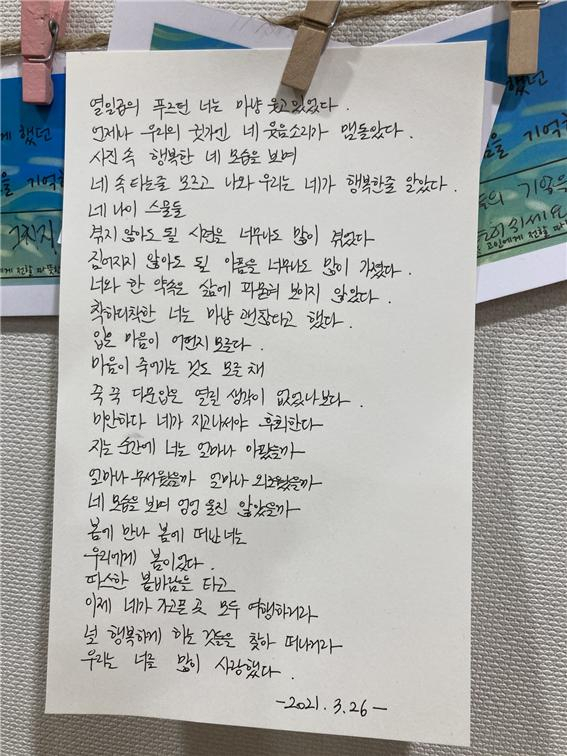 열일곱의 푸르던 너는 마냥 웃고있었다.
언제나 우리의 귓가엔 네 웃음소리가 맴돌았다.
사진 속 행복한 네 모습을 보며
네 속 타는줄 모르고 나와 우리는 네가 행복한줄 알았다.
네 나이 스물둘
겪지 않아도 될 시련을 너무나도 많이 겪었다
짊어지지 않아도 될 아픔을 너무나도 많이 가졌다.
너와 한 약속은 삶에 파묻혀 보이지 않았다.
착하디착한 너는 마냥 괜찮다고 했다.
입은 마음이 어떤지 모른다.
마음이 죽어가는 것도 모른 채
꾹 꾹 다문입은 열릴 생각이 없었나보다.
미안하다 네가 지고나서야 후회한다
지는 순간에 너는 얼마나 아팠을까
얼마나 무서웠을까 얼마나 외로웠을까
네 모습을 보며 엉엉 울진 않았을까
봄에 만나 봄에 떠난 너는
우리에게 봄이었다.
따스한 봄바람을 타고
이제 네가 가고픈 곳 모두 여행하거라
널 행복하게 하는 것들을 찾아 떠나거라
우리는 너를 많이 사랑했다.
-2021. 3. 26-
했던
기억
했던
기억
의 기억을
에게 전할 따뜻한
고인에게 전할 따뜻